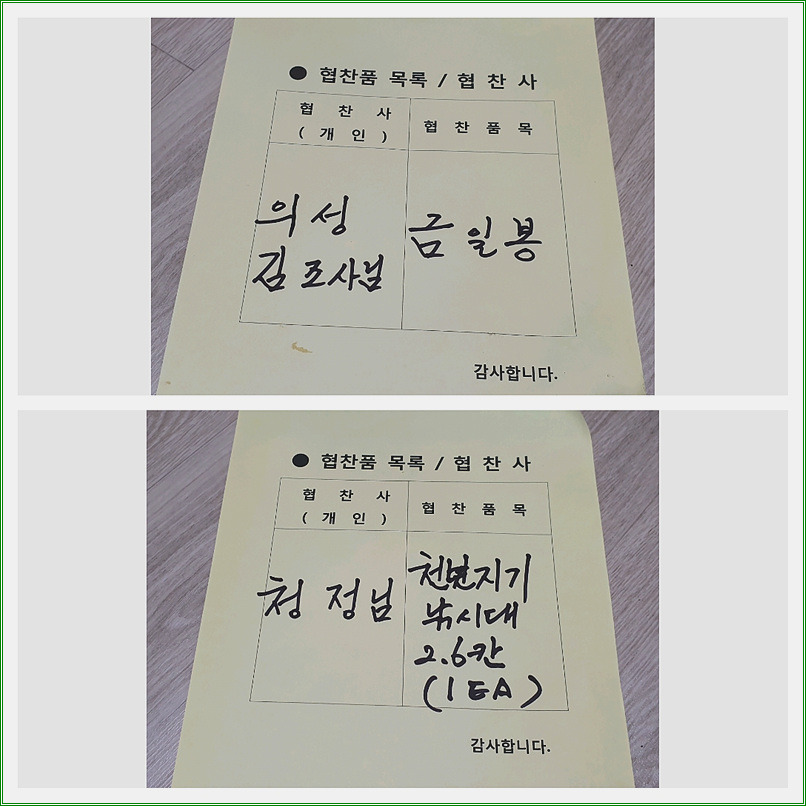 ● 협찬품 목록 / 협 찬 사
협 찬 사
( 개 인 )
협 찬 품 목
의성
김조사님
금일봉
감사합니다.
● 협찬품 목록 / 협 찬 사
협 찬 사
( 개 인 )
협 찬 품 목
청정님
천년지기
낚시대
2.6칸
(1EA)
감사합니다.